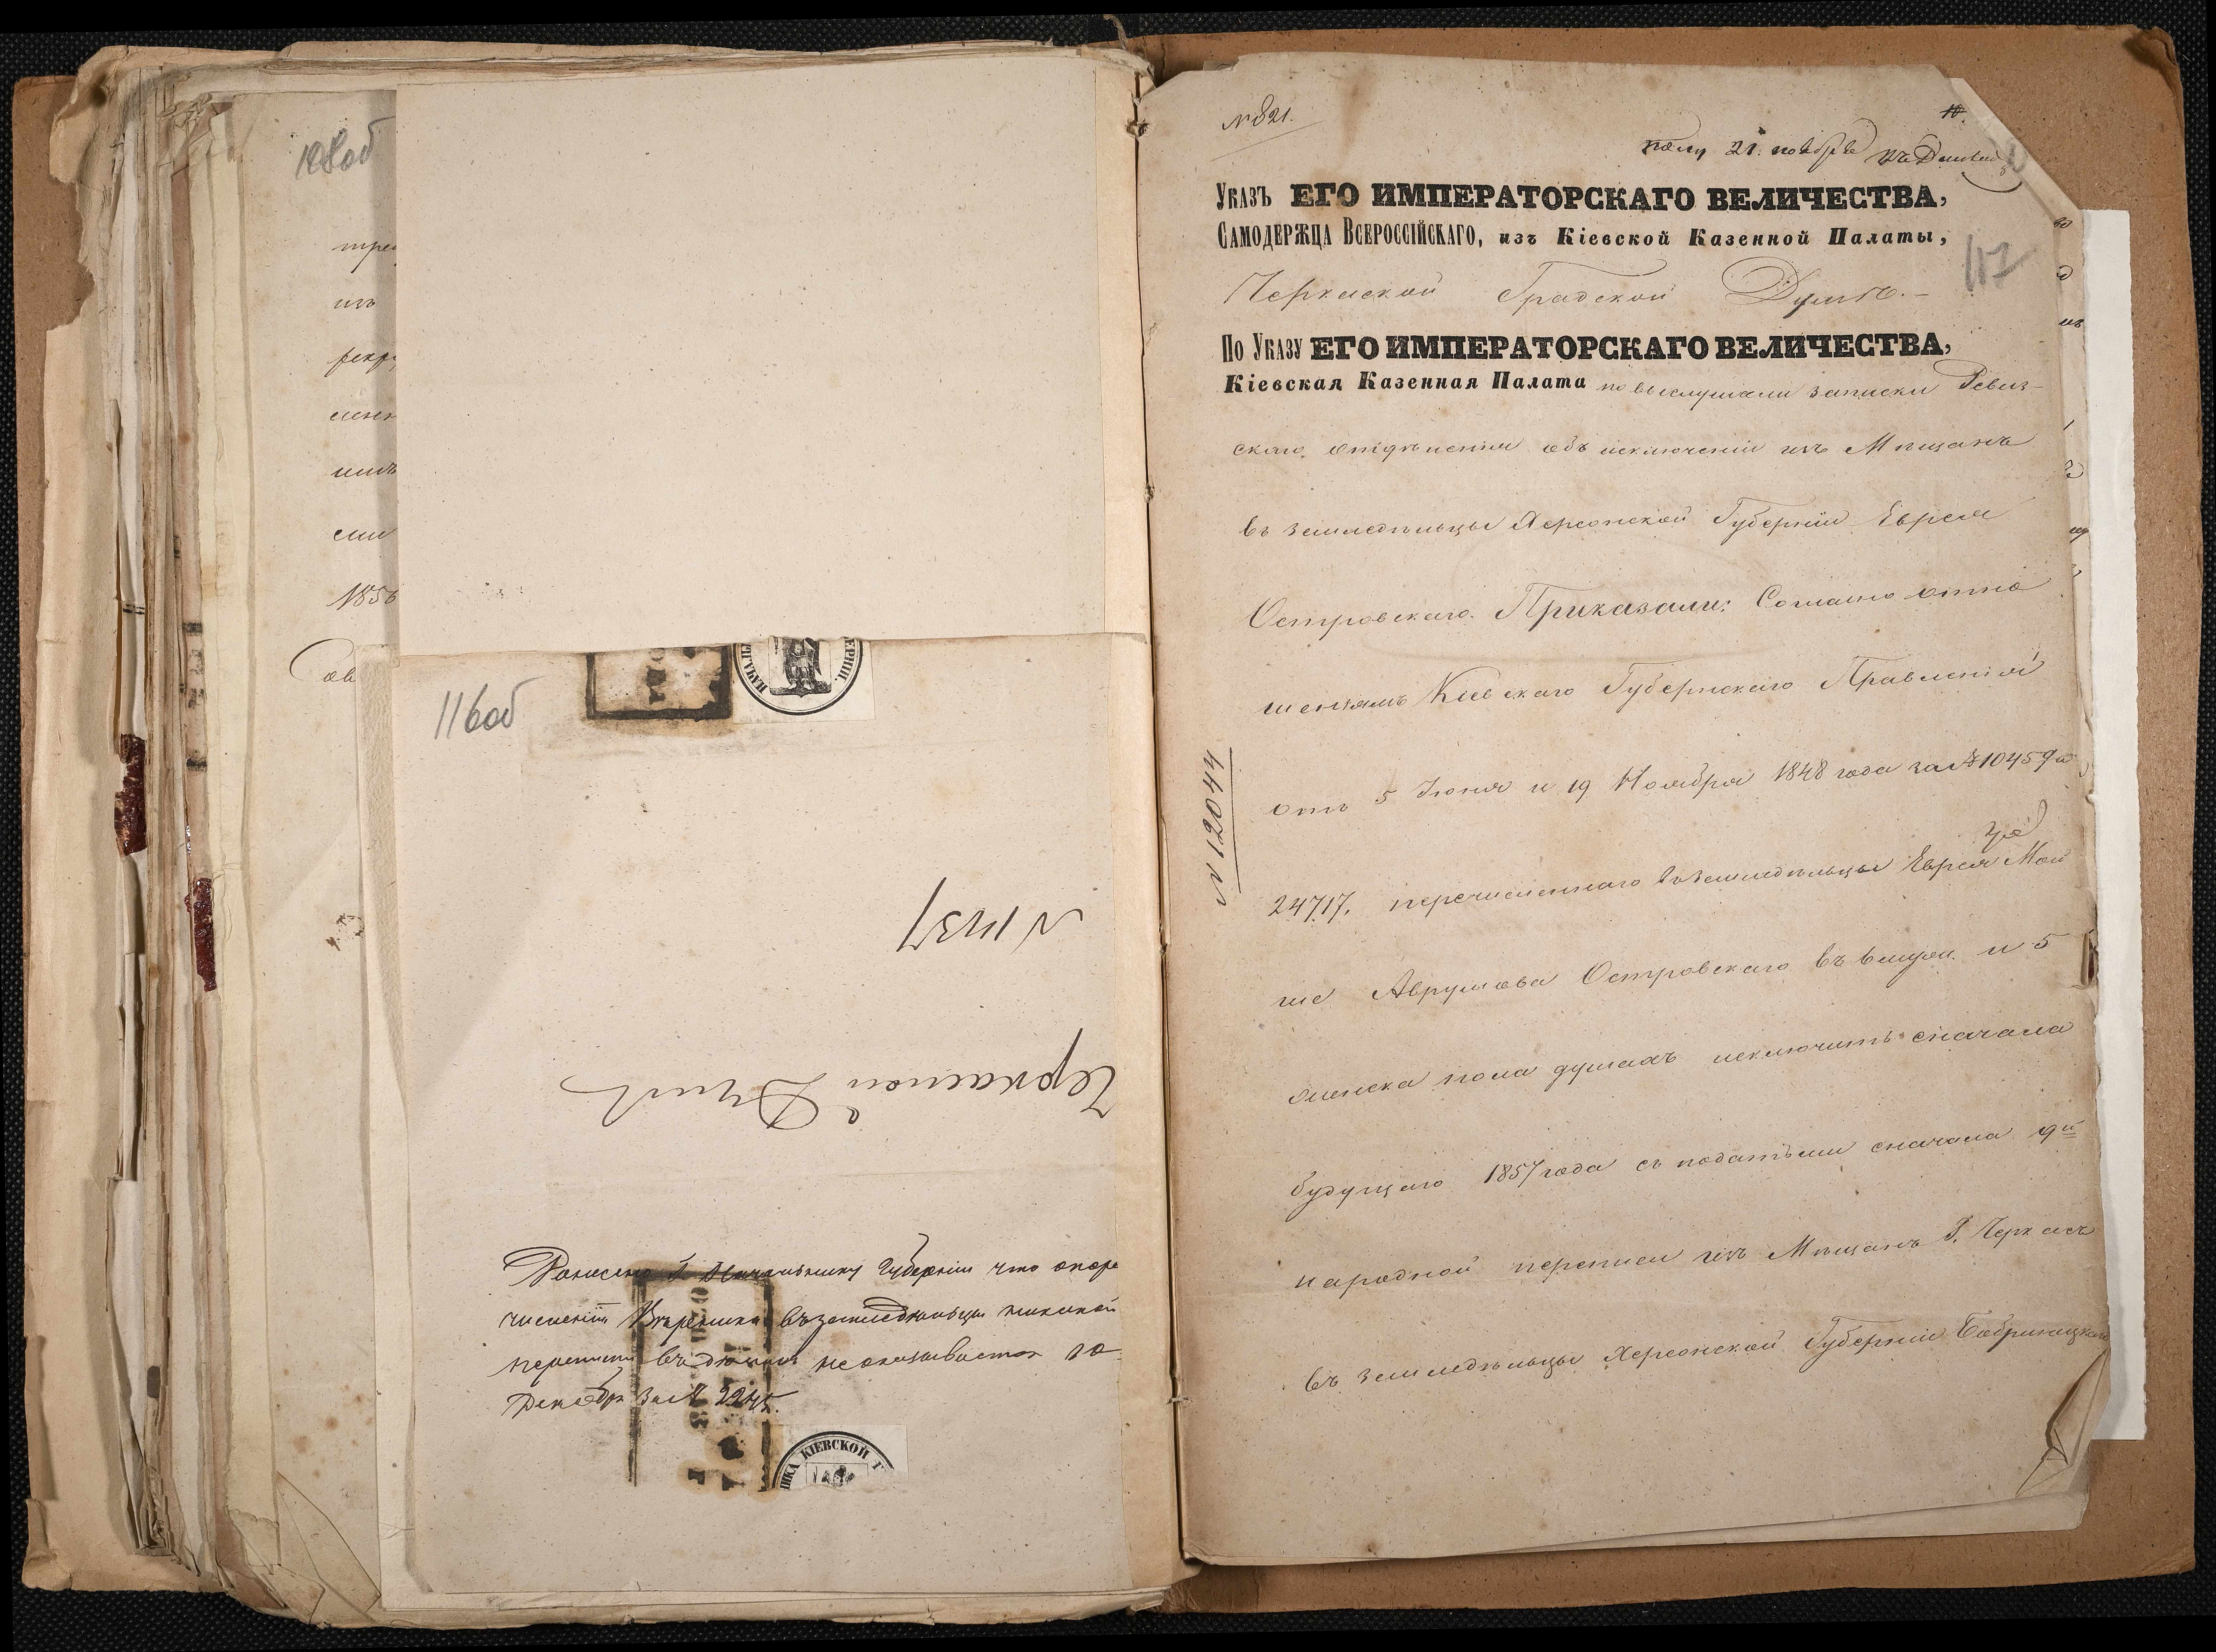 108об
трес
изъ
рекр
1856
116об
ЕРНІИ.
НАЧАЛЬ
N 11437
Черкаской Думѣ
Донесено Г. Начальнику Губерніи что о пере
численіи въ земледѣльцы никакой
переписки въ Думѣ не оказывается 10
Декабря за № 2245.
НИКА КІЕВСКОЙ Г
N 821.
10.
Пол. 21. ноября
Указъ ЕГО ИМПЕРАТОРСКАГО ВЕЛИЧЕСТВА,
Самодержца Всероссійскаго, изъ Кіевской Казенной Палаты,
117
Черкаской Градской Думѣ.–
По Указу ЕГО ИМПЕРАТОРСКАГО ВЕЛИЧЕСТВА,
Кіевская Казенная Палата по выслушаніи записки Ревиз-
скаго отдѣленія объ исключеніи изъ Мѣщанъ
въ земледѣльцы Херсонской Губерніи Еврея
Островскаго. Приказали: Согласно отно
шеніямъ Кіевскаго Губернскаго Правленія
отъ 5 Іюня и 19 Ноября 1848 года за № 10459 и
N 12044
24717. перечисленнаго въ земледѣльцы Еврея Мой
ше Аврумова Островскаго въ 6 муж. и 5
женска пола душахъ исключить сначала
будущаго 1857 года съ податьми сначала 9й
народной переписи изъ Мѣщанъ г. Черкасъ
въ земледѣльцы Херсонской Губерніи Бобринецкаго